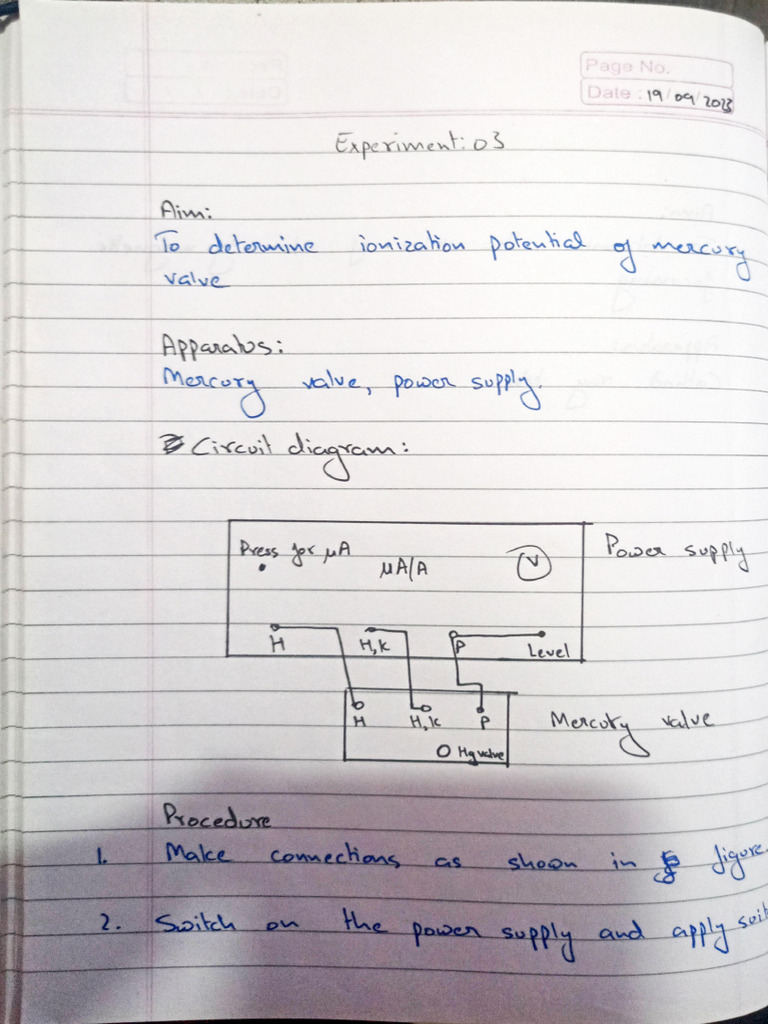 Page No.
Date : 19/09/2023
Experiment: 03
Aim:
To determine ionization potential of mercury
valve
Apparatus:
Mercury valve, power supply.
Circuit diagram:
Press for μA
μA/A
V
Power supply
H
H,K
P
Level
H
H,K
P
Mercury valve
Hg valve
Procedure
1. Make connections as shown in figure.
2. Switch on the power supply and apply suit